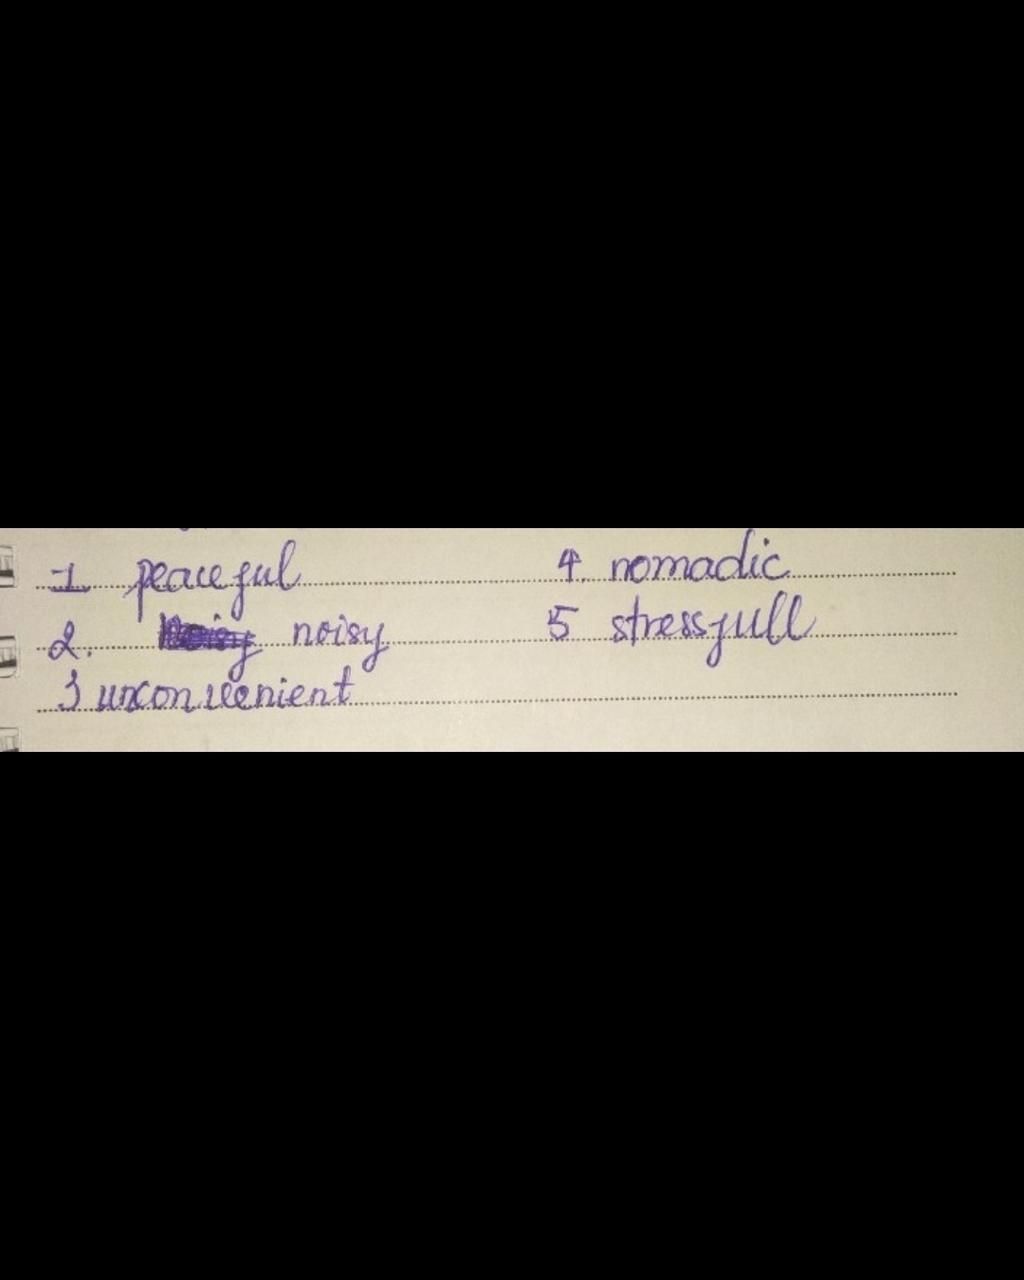 1. peaceful 4. nomadic
2. noisy 5 stressfull
3 unconvenient